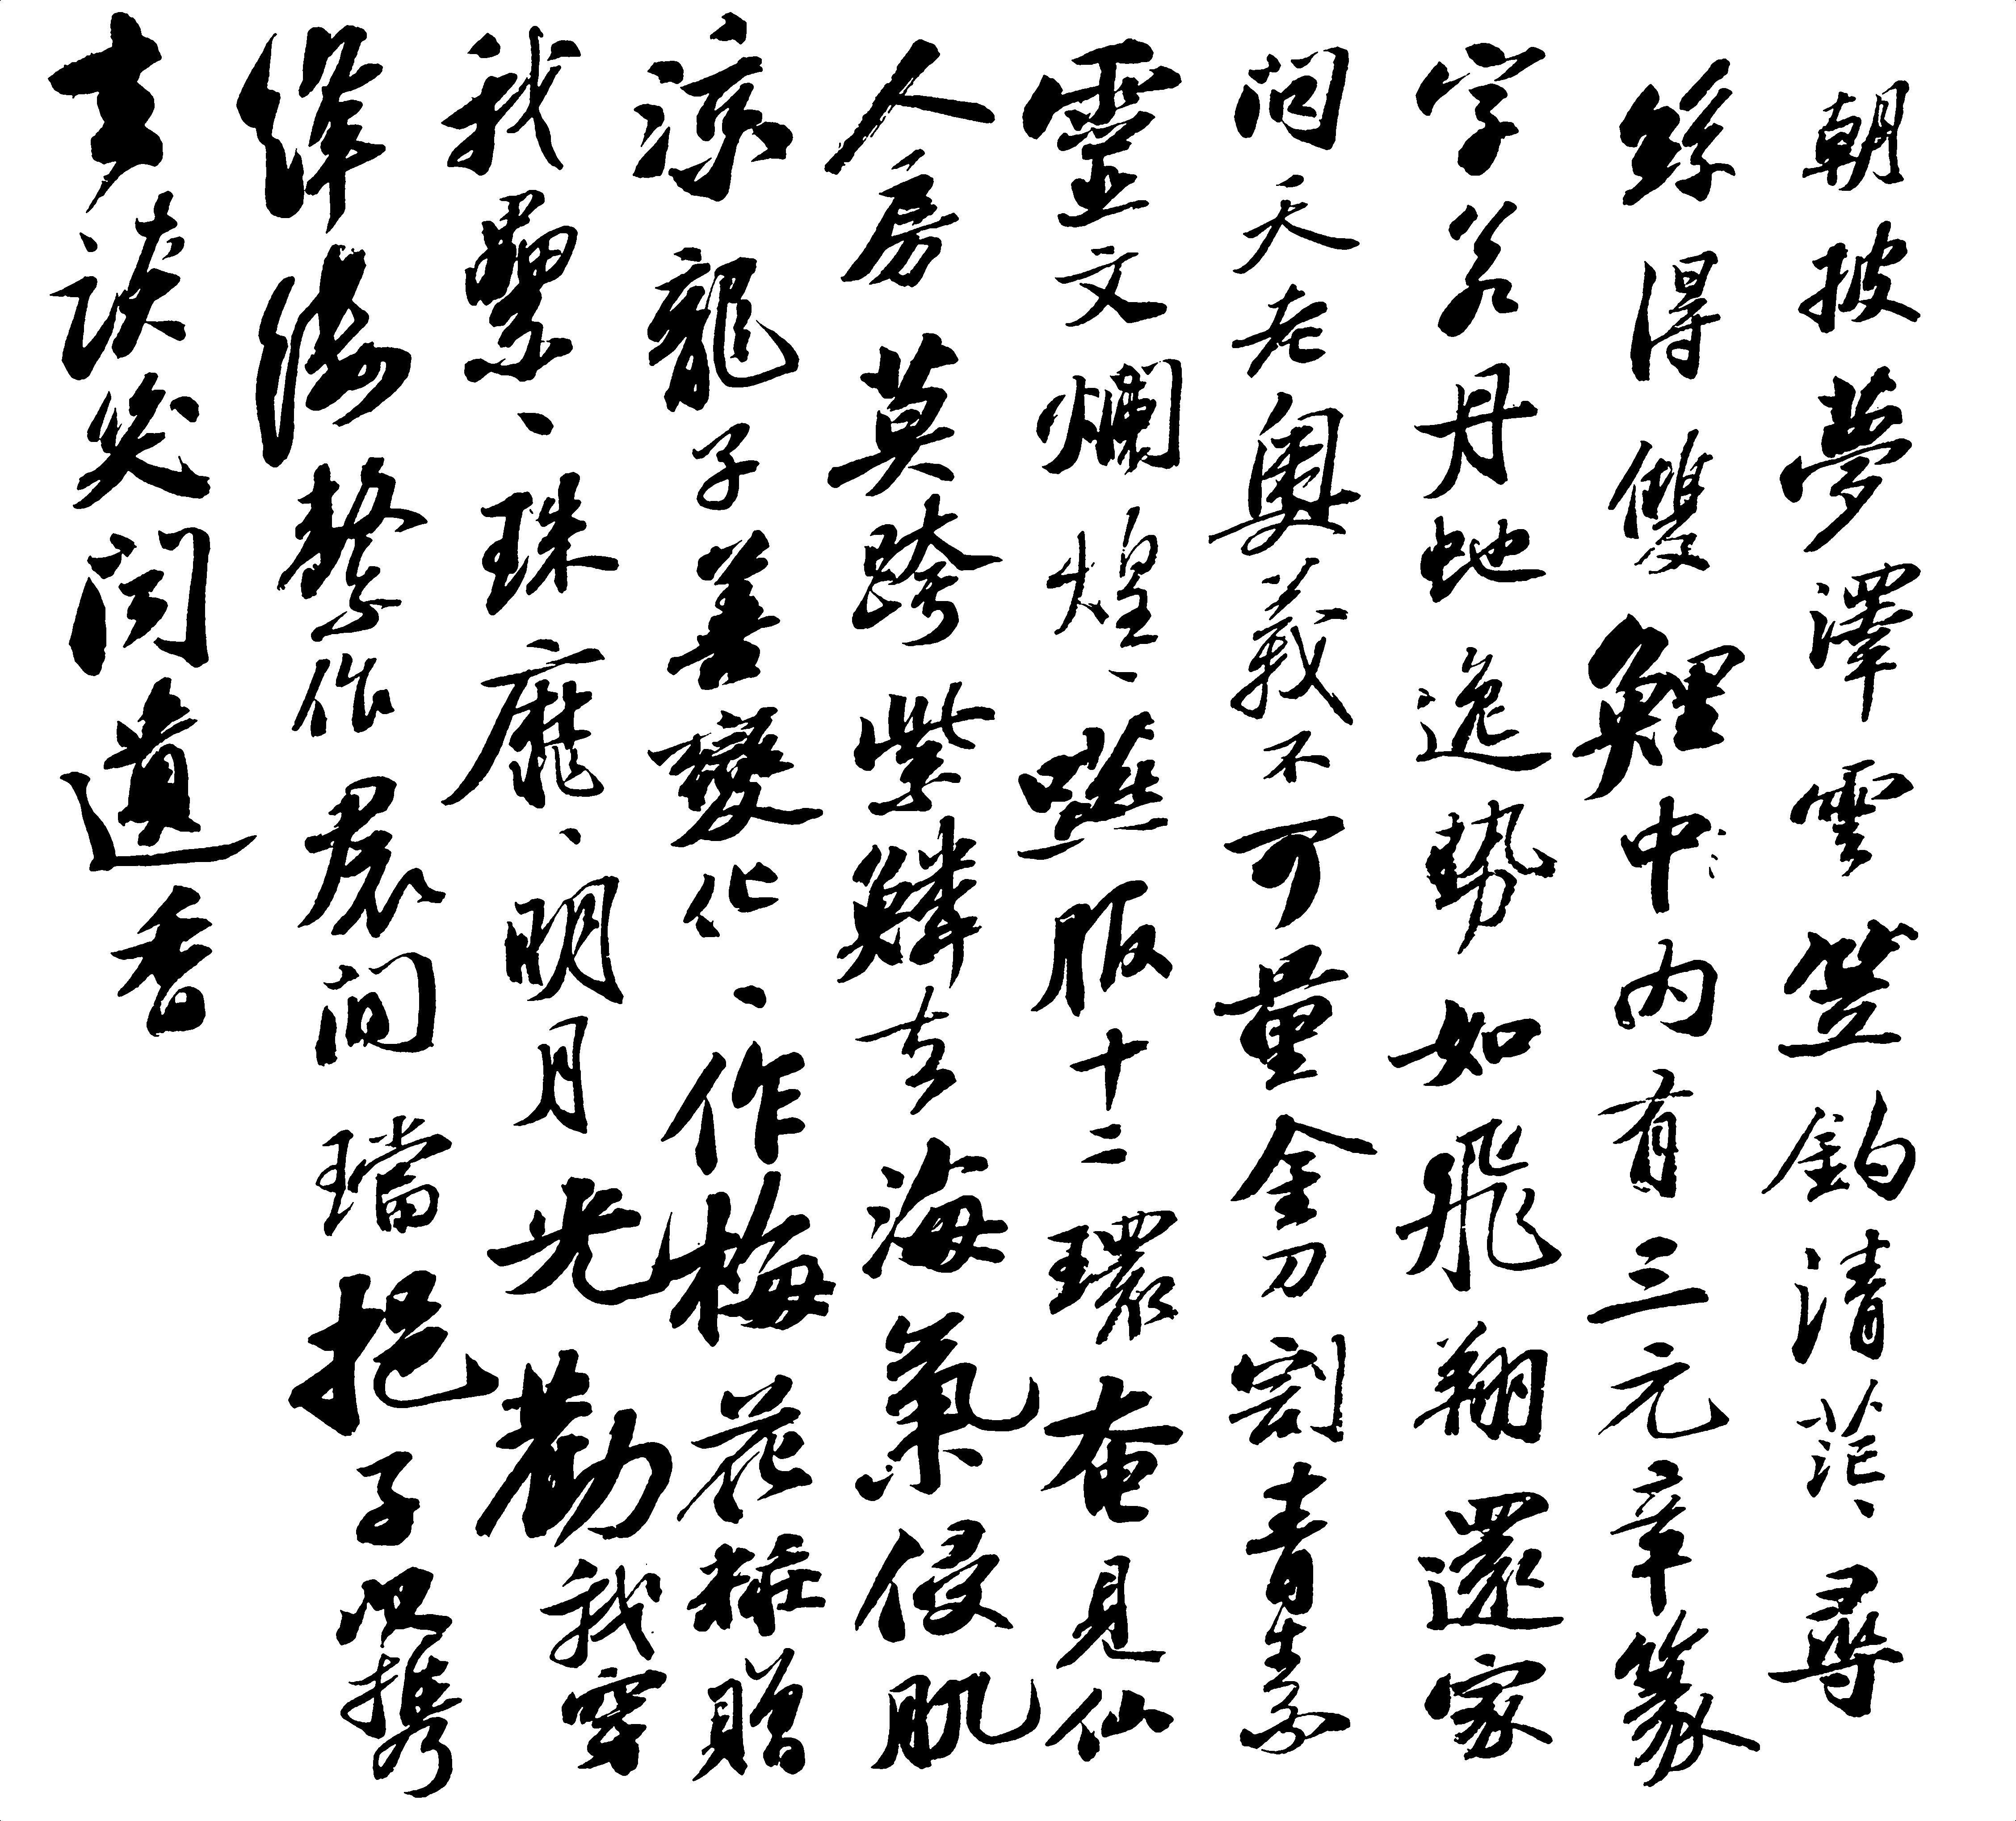 朝披夢澤雲笠釣清茫〻尋
絲得雙鯉中内有三元章篆
字若丹蛇逸勢如飛翔還家
問天老奧義不可量金刀割青素
靈文爛煌〻嚥服十二環奄見仙
人房莫跨紫鱗去海氣侵肌
涼龍子善變化〻作梅花粧贈
我纍〻珠靡〻明月光勸我穿
絳縷繫作裙間璫挹子以攜
去談笑聞遺香